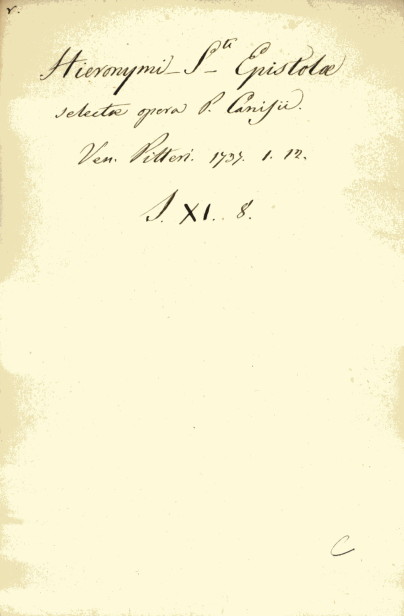 r.
Hieronymi_ S_ti Epistolæ
selectæ opera P. Canisii.
Ven. Pitteri. 1737. 1. 12.
S. XI. 8.
C